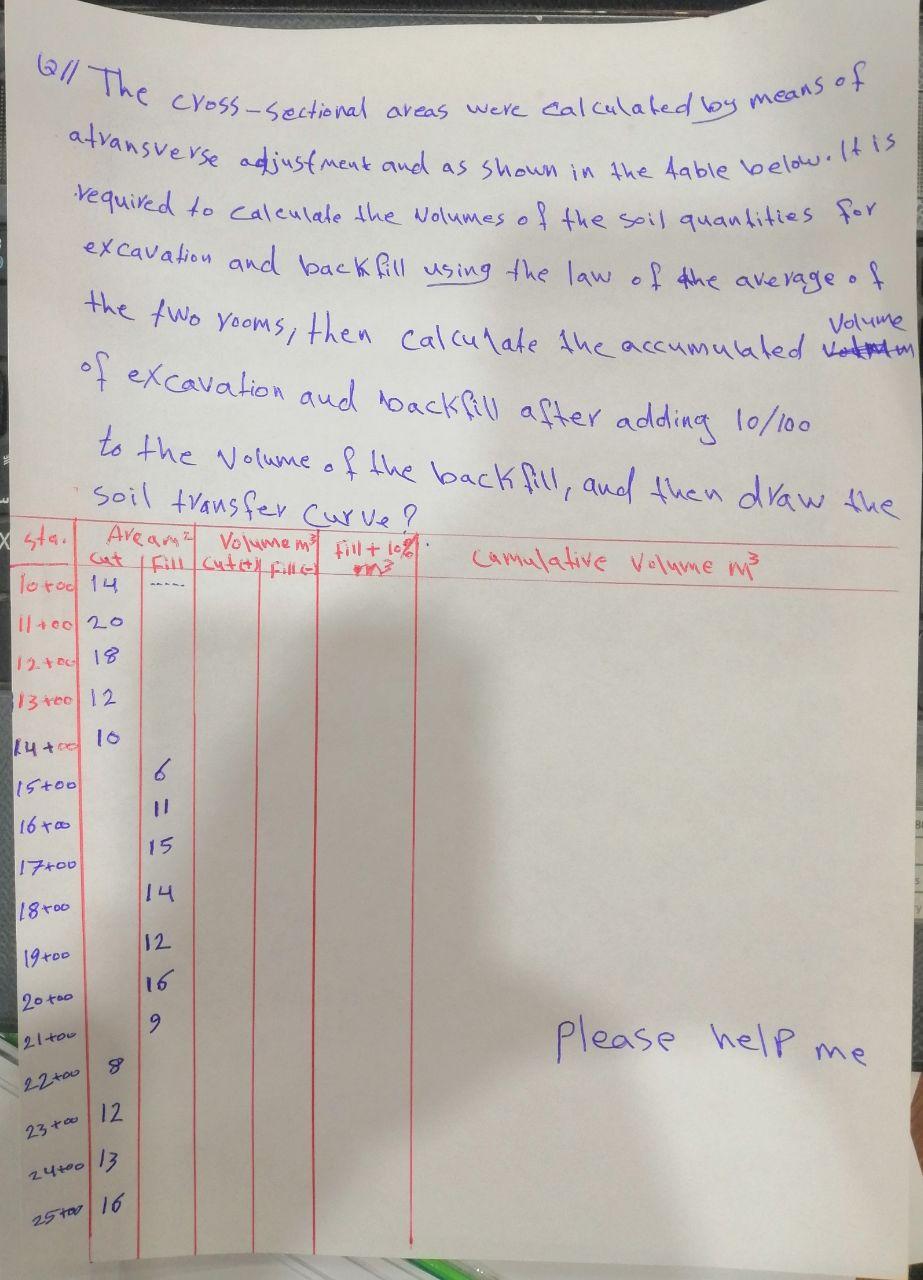 Q// The cross-sectional areas were calculated by means of
atransverse adjustment and as shown in the table below. It is
required to calculate the volumes of the soil quantities for
excavation and backfill using the law of the average of
the two rooms, then calculate the accumulated volume
of excavation and backfill after adding 10/100
to the volume of the backfill, and then draw the
soil transfer curve?
sta. Area m² Volume m³ fill + 10% m³ Cumulative Volume m³
cut fill cut(+) fill(-)
10+00 14 -----
11+00 20
12+00 18
13+00 12
14+00 10
15+00 6
16+00 11
17+00 15
18+00 14
19+00 12
20+00 16
21+00 9
22+00 8
23+00 12
24+00 13
25+00 16
Please help me